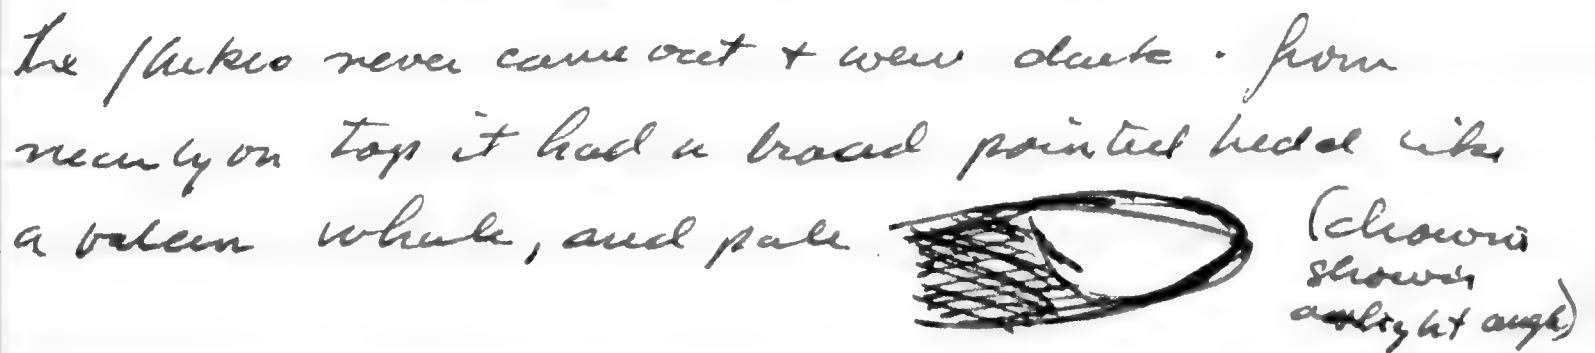 the flukes never came out & were dark. From
nearly on top it had a broad pointed head like
a baleen whale, and pale
(drawn
shown
at slight angle)